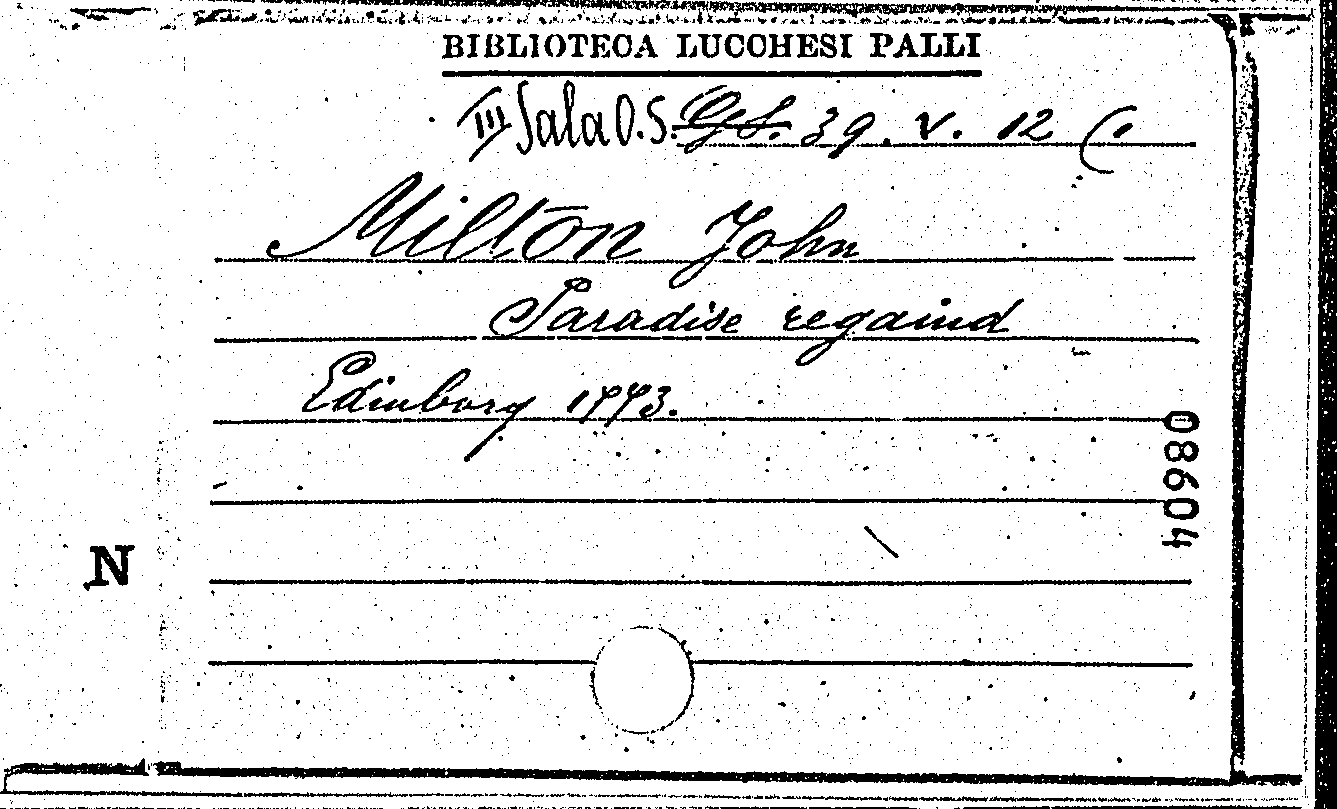 BIBLIOTECA LUCCHESI PALLI
III Sala O.S. G.S. 39. V. 12 (1
Milton John
Paradise regaind
Edinborg 1773.
08604
N